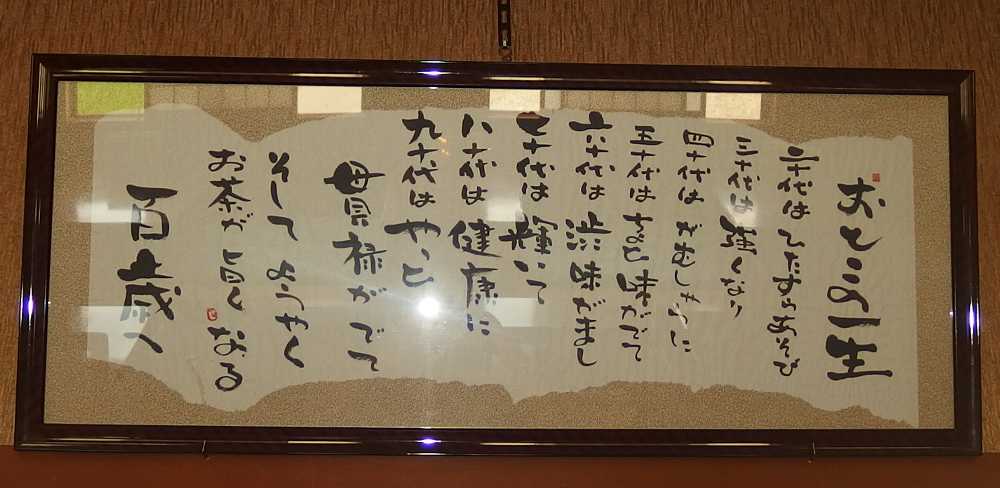 おとこの一生
二十代はひたすらあそび
三十代は強くなり
四十代はがむしゃらに
五十代はちょと味がでて
六十代は渋味がまし
七十代は輝いて
八十代は健康に
九十代はやっと
貫禄がでて
そしてようやく
お茶が旨くなる
百歳へ